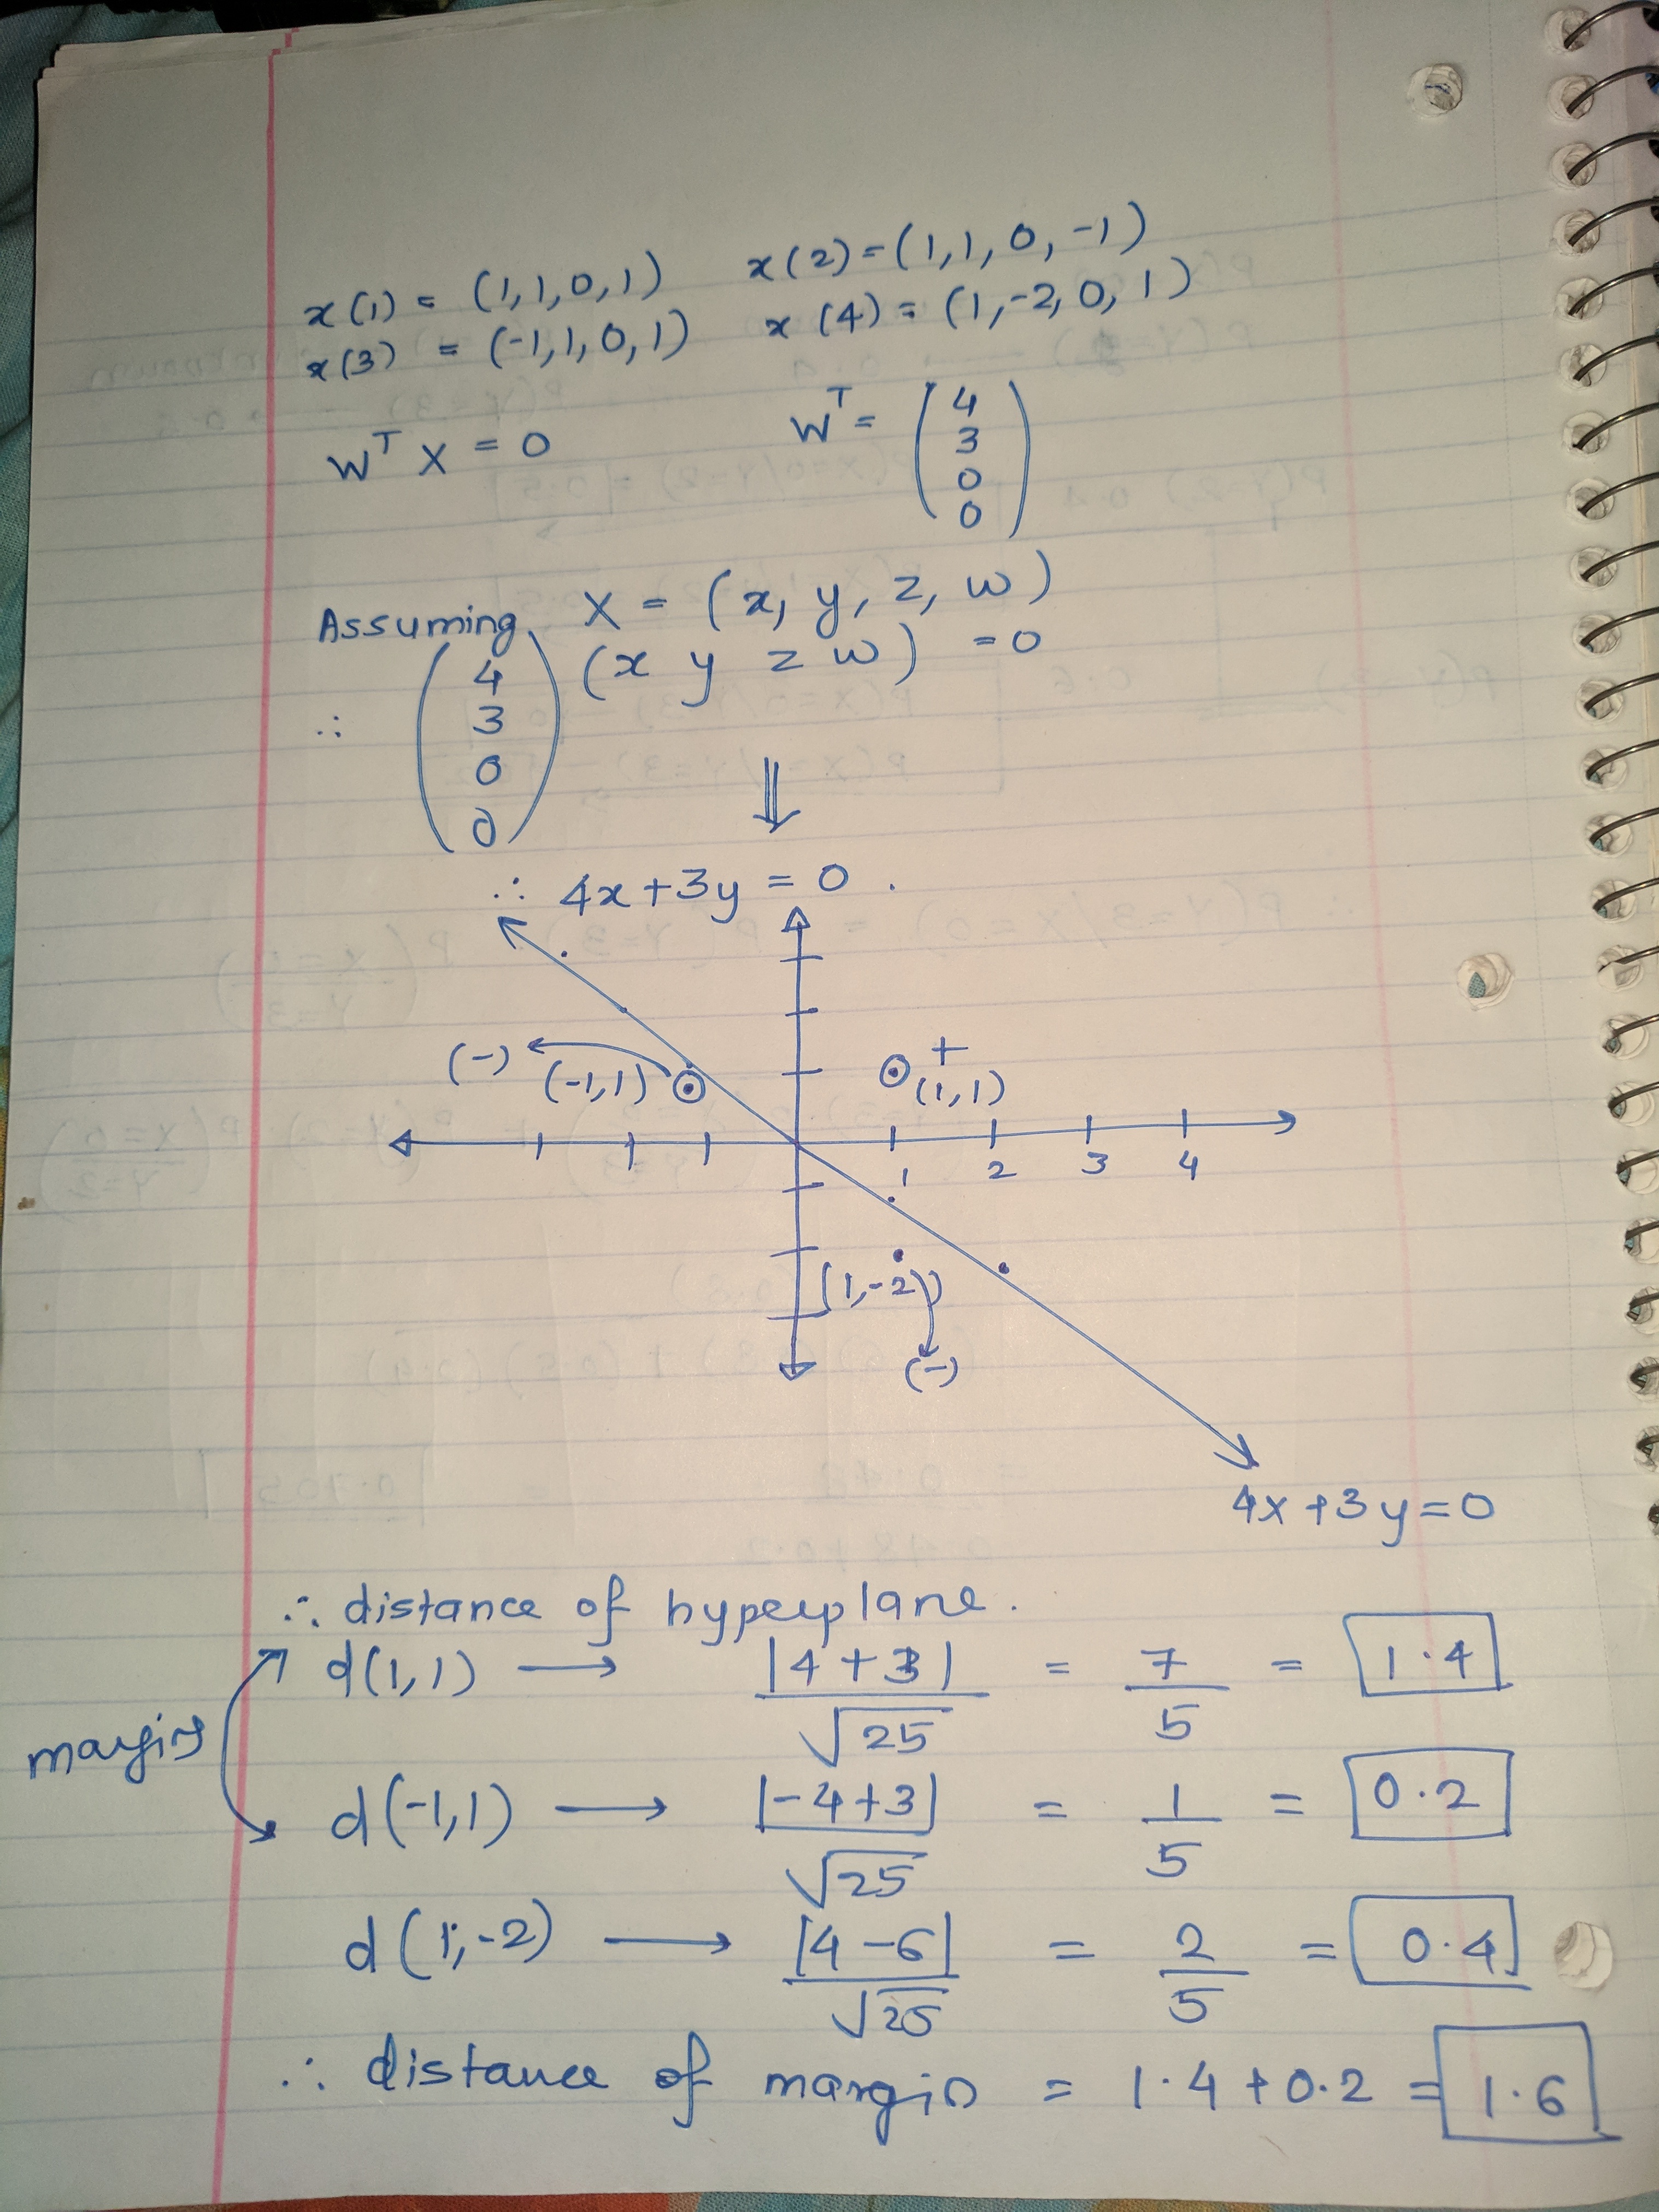 x(1) = (1,1,0,1)   x(2) = (1,1,0,-1)
x(3) = (-1,1,0,1)   x(4) = (1,-2,0,1)
W^T X = 0   W^T = (4 3 0 0)
Assuming X = (x, y, z, w)
∴ (4 3 0 0) (x y z w) = 0
⇓
∴ 4x+3y = 0 .
(-) (-1,1)
+
(1,1)
1 2 3 4
(1,-2)
(-)
4x+3y=0
∴ distance of hyperplane.
d(1,1) → |4+3| / √25 = 7/5 = 1.4
margin
d(-1,1) → |-4+3| / √25 = 1/5 = 0.2
d(1,-2) → |4-6| / √25 = 2/5 = 0.4
∴ distance of margin = 1.4+0.2 = 1.6